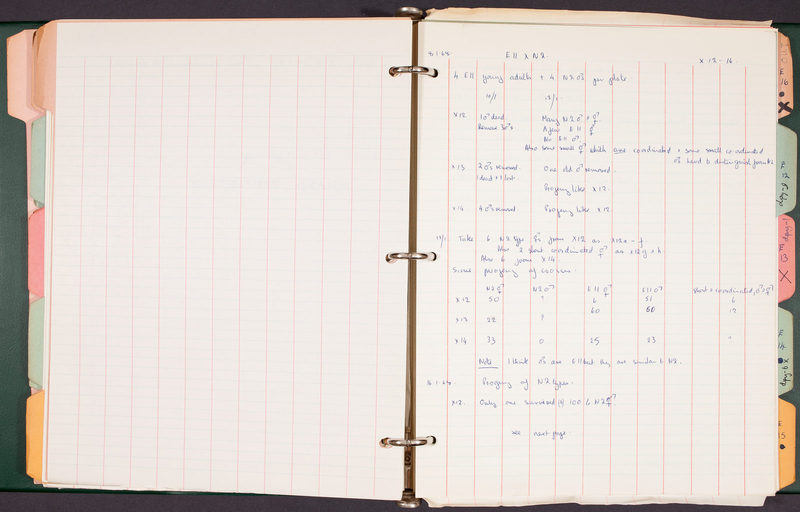 8.1.68. E11 x N2. X 12-16.
4 E11 young adults + 4 N2 ♂s per plate
10/1 12/1
X12 1♂ dead Many N2 ♂ + ⚥
Remove 3♂s A few E11 ⚥
No E11 ♂
Also some small ⚥ which are coordinated + some small coordinated
♂s hard to distinguish from N2
X13 2♂s removed. One old ♂ removed.
1 dead + 1 lost
Progeny like X12.
X14 4♂s removed Progeny like X12
Take 6 N2 type ⚥s from X12 as X12a-f.
2 short coordinated ⚥ as X12g + h.
Also 6 from X14
Score progeny of
N2⚥ N2♂ E11⚥ E11♂ short + coordinated, ♂+⚥
X12 50 ? 6 51 6
60 60 12
X13 22 ?
X14 33 0 25 23 ?
Note I think ♂s are E11 but they are similar to N2.
16.1.68. Progeny of N2 types.
X12. Only one survived 100 N2⚥
see next page.
E
16
X
dpy-1
E
13
X
E
14
dpy-6 X
E
15